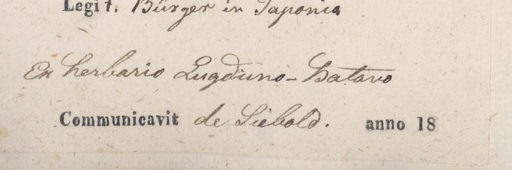 Legit. Bürger in Japonia
Ex herbario Lugduno-Batavo
Communicavit de Siebold. anno 18